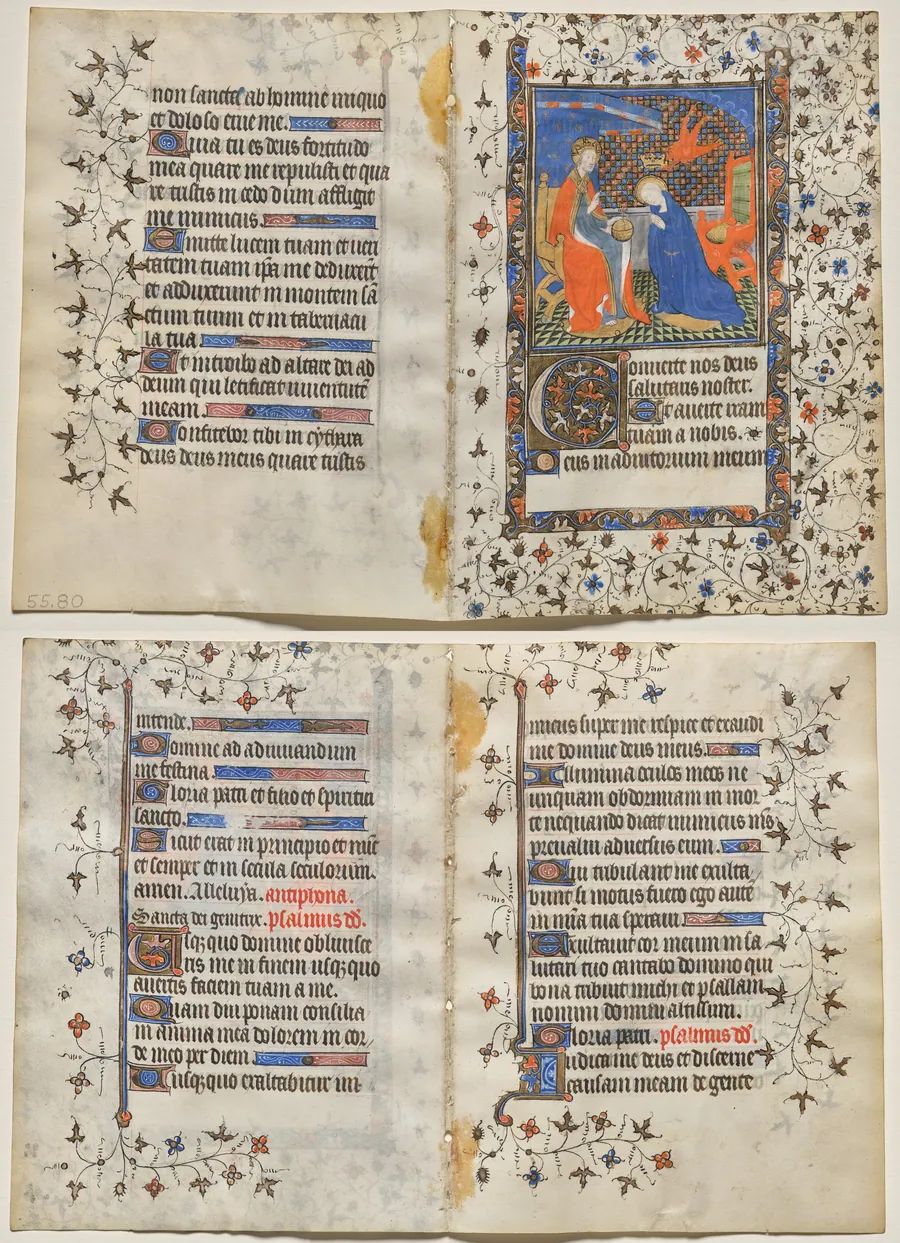 non sancta ab homine iniquo
et doloso erue me.
Quia tu es deus fortitudo
mea quare me repulisti et qua
re tristis incedo dum affligit
me inimicus.
Emitte lucem tuam et veri
tatem tuam ipa me deduxert
et adduxerunt in montem sā
ctum tuum et in tabernacu
la tua.
Et introibo ad altare dei ad
deum qui letificat iuventutē
meam.
Confitebor tibi in cythara
deus deus meus quare tristis
55.80
Converte nos deus
salutaris noster.
Et averte iram
tuam a nobis.
Deus in adiutorium meum
intende.
Domine ad adiuvandum
me festina.
Gloria patri et filio et spiritui
sancto.
Sicut erat in principio et nūc
et semper et in secula seculorum.
amen. Alleluya. antiphona.
Sancta dei genitrix. psalmus dd.
Usqz quo domine oblivisce
ris me in finem usqz quo
avertis faciem tuam a me.
Quam diu ponam consilia
in anima mea dolorem in cor-
de meo per diem.
Usqz quo exaltabitur ini-
micus super me respice et exaudi
me domine deus meus.
Illumina oculos meos ne
unquam obdormiam in mor
te nequando dicat inimicus m9
prevalui adversus eum.
Qui tribulant me exulta
bunt si motus fuero ego autē
in mīa tua speravi.
Exultavit cor meum in sa
lutari tuo cantabo domino qui
bona tribuit michi et psallam
nomini domini altissimi.
Gloria patri. psalmus dd.
Iudica me deus et discerne
causam meam de gente